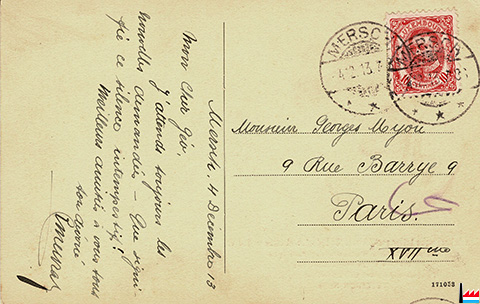 Mersch, 4 Decembre 13
Mon cher Géo,
J'attends toujours les
nouvelles demandées – Que signi-
fie ce silence intempestif?
Meilleures amitiés à vous tous
ton dévoué
MERSCH
4.12.13.7
MERSCH
LUXEMBOURG
10
CENTIMES
Monsieur Georges Myore
9 Rue Barrye 9
Paris.
XVII me
171053